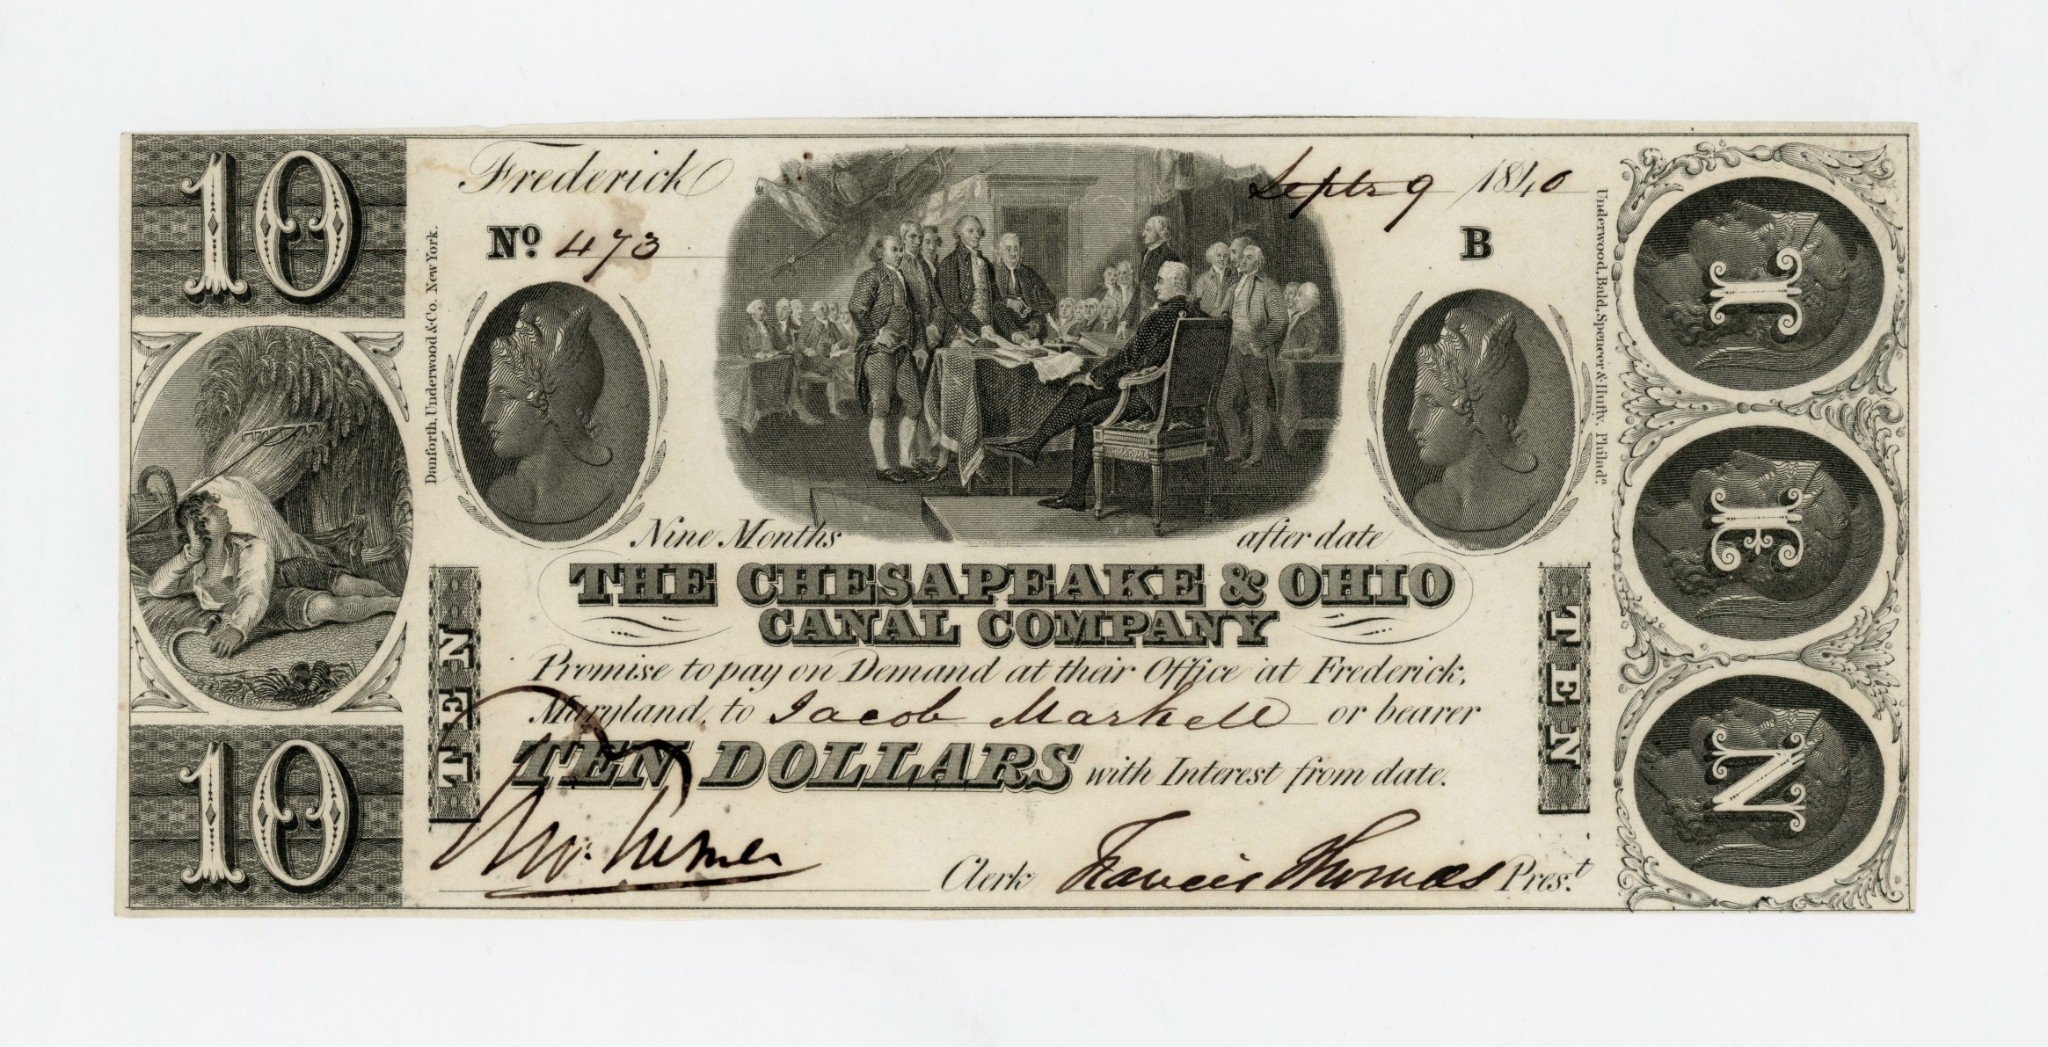 10
Frederick Septr 9 1840
No. 473 B
Danforth, Underwood & Co. New York.
Underwood, Bald, Spencer & Hufty, Philada.
Nine Months after date
THE CHESAPEAKE & OHIO
CANAL COMPANY
Promise to pay on Demand at their Office at Frederick,
Maryland, to Jacob Markell or bearer
TEN DOLLARS with Interest from date.
TEN
TEN
10
Clerk Francis Thomas Prest.
T
E
N